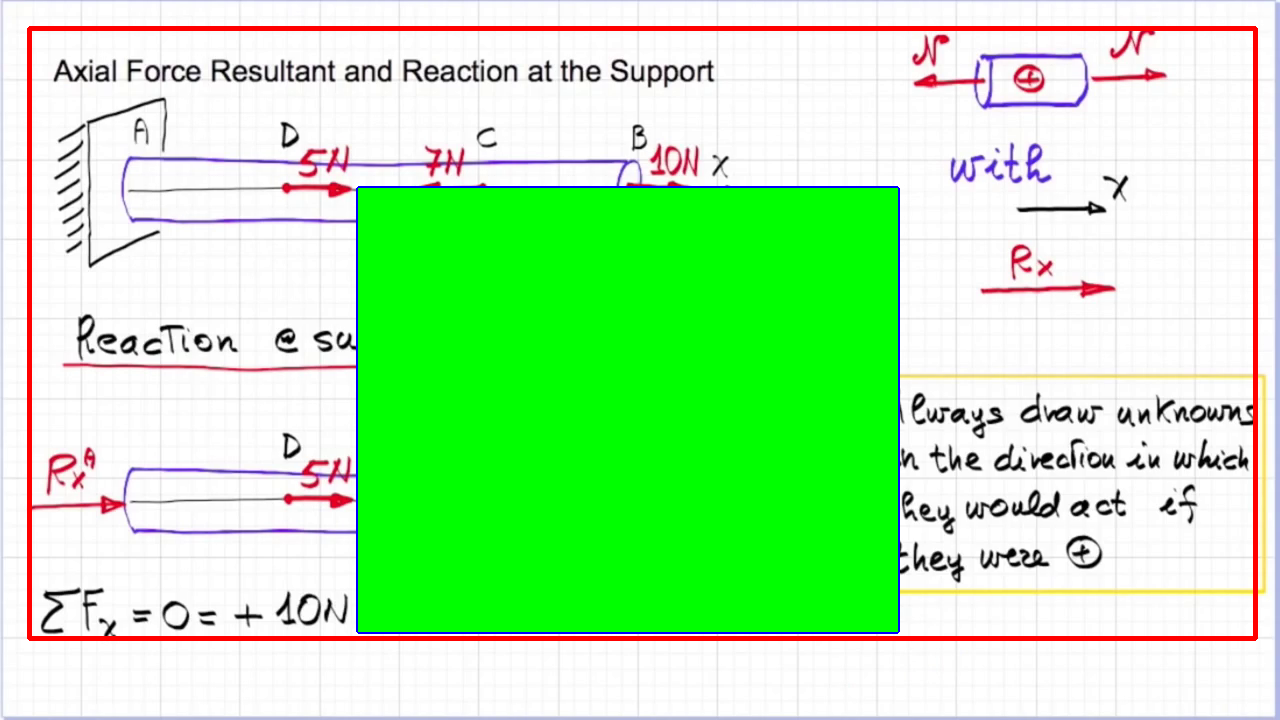 Axial Force Resultant and Reaction at the Support
N N
A D 5N 7N C B 10N X
with
X
Rx
Reaction @
RxA D 5N
lways draw unknowns
n the direction in which
hey would act if
they were +
ΣFx = 0 = + 10N